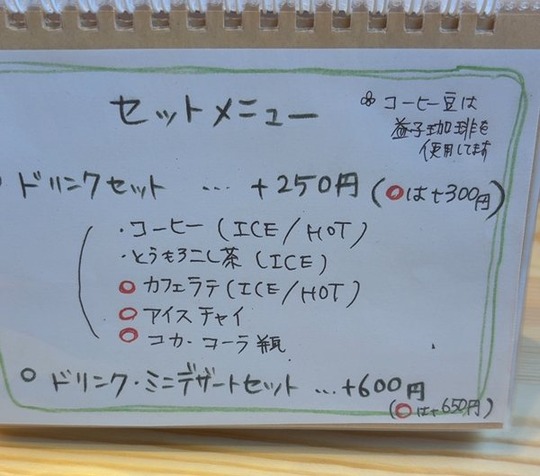 セットメニュー
※コーヒー豆は
益子珈琲を
使用してます
○ ドリンクセット … +250円 (○は+300円)
・コーヒー (ICE/HOT)
・とうもろこし茶 (ICE)
○ カフェラテ (ICE/HOT)
○ アイスチャイ
○ コカ・コーラ瓶
○ ドリンク・ミニデザートセット … +600円
(○は+650円)